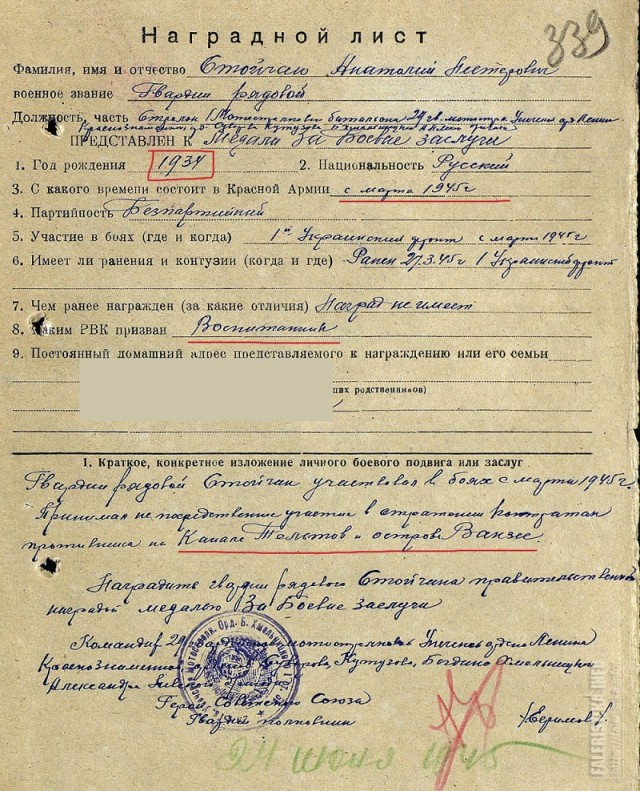 339
Наградной лист
Фамилия, имя и отчество Стойчан Анатолий Нестерович
военное звание Гвардии рядовой
Должность, часть Стрелок 1 Мотострелкового батальона 29 гв. мотостр. Унечской орд. Ленина
Краснознаменной, Суворова, Кутузова
ПРЕДСТАВЛЕН К Медали За Боевые заслуги
1. Год рождения 1934 2. Национальность Русский
3. С какого времени состоит в Красной Армии с марта 1945г
4. Партийность Безпартийный
5. Участие в боях (где и когда) 1й Украинский фронт с марта 1945г
6. Имеет ли ранения и контузии (когда и где) Ранен 27.3.45г 1 Украинский фронт
7. Чем ранее награжден (за какие отличия) Наград не имеет
8. Каким РВК призван Воспитанник
9. Постоянный домашний адрес представляемого к награждению или его семьи
их родственников)
1. Краткое, конкретное изложение личного боевого подвига или заслуг
Гвардии рядовой Стойчан участвовал в боях с марта 1945г.
Принимал не посредственное участие в отражении контратак
противника на Канале Тельтов и острове Ванзее.
Наградить гвардии рядового Стойчана правительственной
наградой медалью За Боевые заслуги
Командир 29 гв. мотострелковой Унечской орд. Ленина
Краснознаменной, Суворова, Кутузова, Богдана Хмельницкого
Александра Невского
Герой Советского Союза
Гвардии полковник /Ефимов/
24 июня 1945
FALERISTIKA.INFO